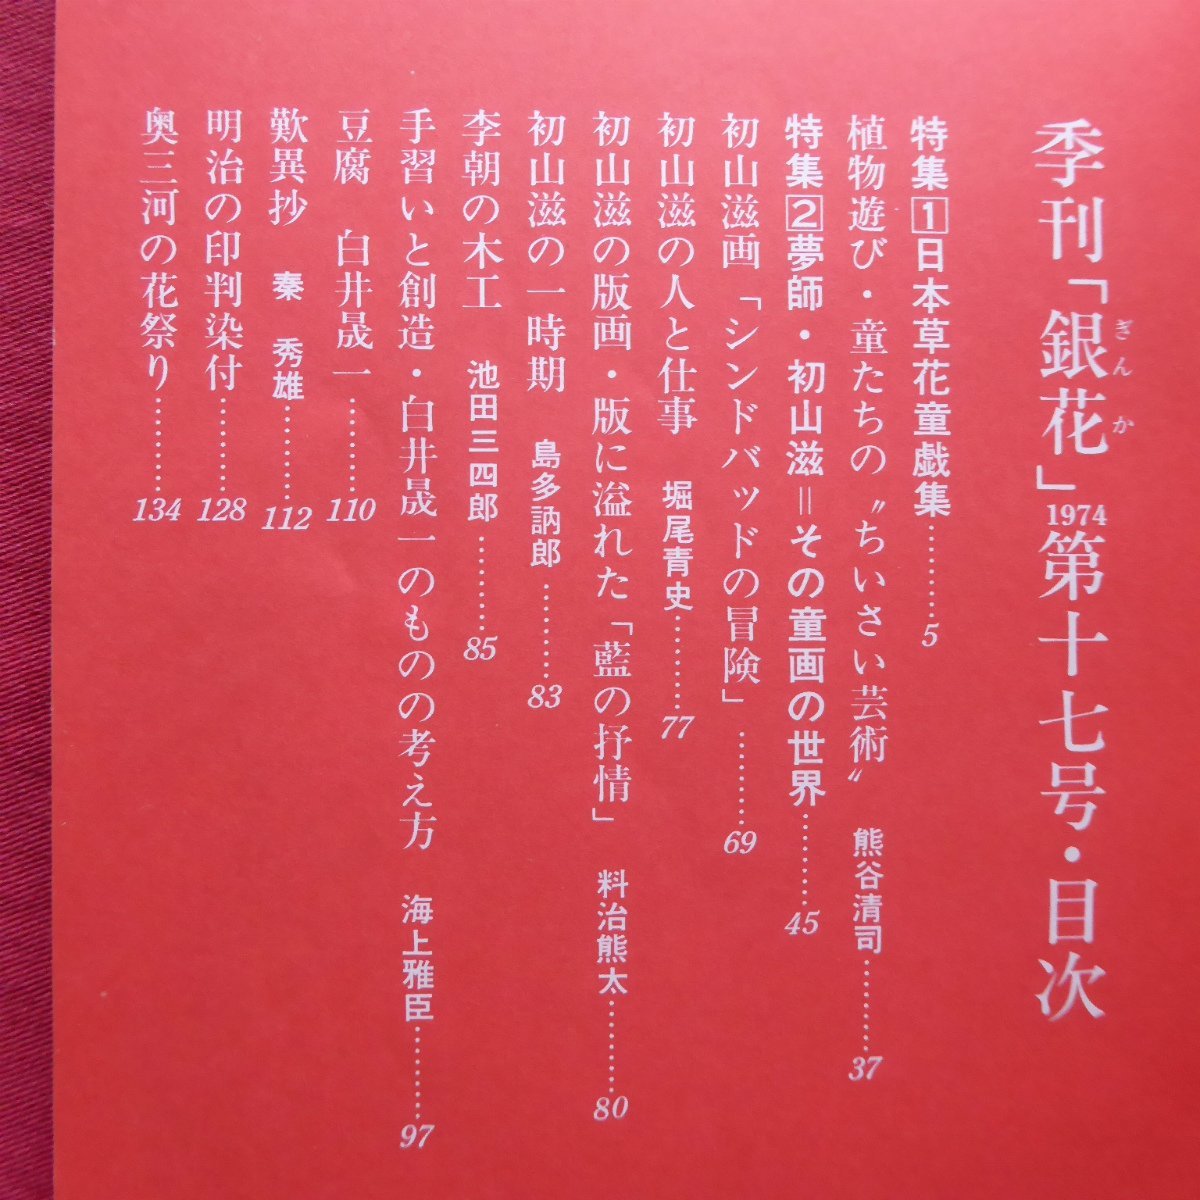 季刊「銀花」1974第十七号・目次
ぎんか
特集1日本草花童戯集…………5
植物遊び・童たちの〝ちいさい芸術〟 熊谷清司…………37
特集2夢師・初山滋＝その童画の世界…………45
初山滋画「シンドバッドの冒険」…………69
初山滋の人と仕事 堀尾青史…………77
初山滋の版画・版に溢れた「藍の抒情」 料治熊太…………80
初山滋の一時期 島多訥郎…………83
李朝の木工 池田三四郎…………85
手習いと創造・白井晟一のものの考え方 海上雅臣…………97
豆腐 白井晟一…………110
歎異抄 秦秀雄…………112
明治の印判染付…………128
奥三河の花祭り…………134